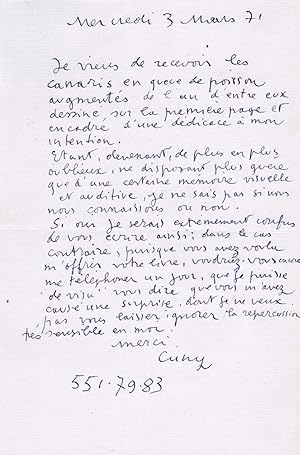 Mercredi 3 Mars 71
Je viens de recevoir les
canaris en queue de poisson
augmentés de l'un d'entre eux
dessiné, sur la première page et
encadré d'une dédicace à mon
intention.
Etant, devenant, de plus en plus
oublieux, ne disposant plus guère
que d'une certaine mémoire visuelle
et auditive, je ne sais pas si nous
nous connaissons ou non.
Si oui je serais extrêmement confus
de vous écrire ainsi; dans le cas
contraire, puisque vous avez voulu
m'offrir votre livre, voudriez-vous encore
me téléphoner un jour, que je puisse
"de visu" vous dire que vous m'avez
causé une surprise, dont je ne veux
pas vous laisser ignorer la repercussion
très sensible en moi.
Merci
Cuny
551.79.83